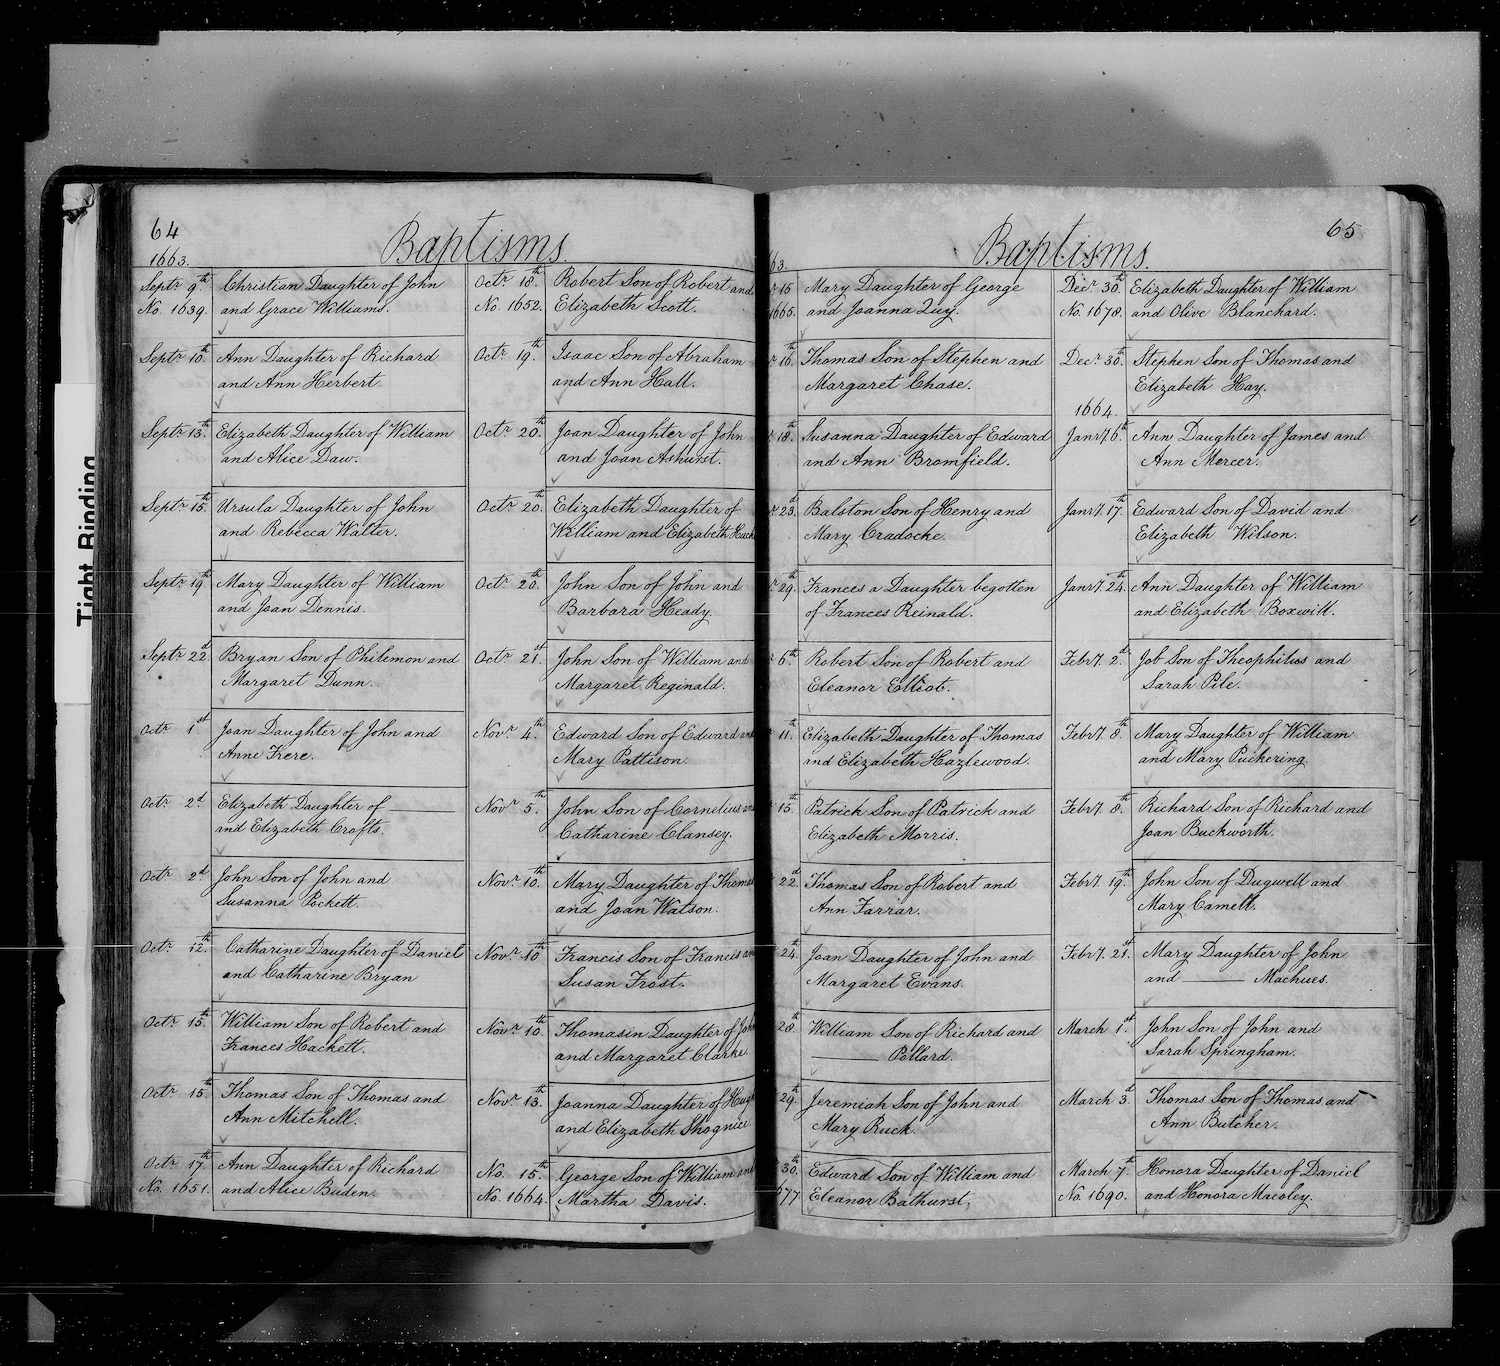 Tight Binding
64
Baptisms.
1663.
Septr. 9th Christian Daughter of John
No. 1639. and Grace Williams.
Septr. 10th Ann Daughter of Richard
and Ann Herbert
Septr. 13th Elizabeth Daughter of William
and Alice Daw.
Septr. 15th Ursula Daughter of John
and Rebecca Walter.
Septr. 19th Mary Daughter of William
and Joan Dennis.
Septr. 22d Bryan Son of Philemon and
Margaret Dunn.
Octr. 1st Joan Daughter of John and
Anne Frere.
Octr. 2d Elizabeth Daughter of ———
and Elizabeth Crofts.
Octr. 2d John Son of John and
Susanna Pockett.
Octr. 12th Catharine Daughter of Daniel
and Catharine Bryan
Octr. 15th William Son of Robert and
Frances Hackett.
Octr. 15th Thomas Son of Thomas and
Ann Mitchell.
Octr. 17th Ann Daughter of Richard
No. 1651. and Alice Buden.
Octr. 18th Robert Son of Robert and
No. 1652. Elizabeth Scott.
Octr. 19th Isaac Son of Abraham
and Ann Hall.
Octr. 20th Joan Daughter of John
and Joan Ashurst.
Octr. 20th Elizabeth Daughter of
William and Elizabeth
Octr. 20th John Son of John and
Barbara Heady.
Octr. 21st John Son of William and
Margaret Reginald.
Novr. 4th Edward Son of Edward and
Mary Pattison
Novr. 5th John Son of Cornelius and
Catharine Clansey.
Novr. 10th Mary Daughter of Thomas
and Joan Watson.
Novr. 10th Francis Son of Francis and
Susan Frost.
Novr. 10th Thomasin Daughter of John
and Margaret Clarke
Novr. 13th Joanna Daughter of Hugh
and Elizabeth Shognice
No. 15th George Son of William and
No. 1664. Martha Davis.
65
Baptisms.
63.
15 Mary Daughter of George
1665. and Joanna Quy.
16th Thomas Son of Stephen and
Margaret Chase.
18th Susanna Daughter of Edward
and Ann Bromfield.
23d Balston Son of Henry and
Mary Cradocke.
29th Frances a Daughter begotten
of Frances Reinald.
6th Robert Son of Robert and
Eleanor Elliot.
11th Elizabeth Daughter of Thomas
and Elizabeth Hazlewood.
15th Patrick Son of Patrick and
Elizabeth Morris.
22d Thomas Son of Robert and
Ann Farrar.
24th Joan Daughter of John and
Margaret Evans.
28th William Son of Richard and
——— Pollard.
29th Jeremiah Son of John and
Mary Ruck.
30th Edward Son of William and
677 Eleanor Bathurst,
Decr. 30th Elizabeth Daughter of William
No. 1678. and Olive Blanchard.
Decr. 30th Stephen Son of Thomas and
Elizabeth Hay.
1664.
Janry. 6th Ann Daughter of James and
Ann Mercer.
Janry. 17th Edward Son of David and
Elizabeth Wilson.
Janry. 24th Ann Daughter of William
and Elizabeth Boxwill.
Febry. 2d Job Son of Theophilus and
Sarah Pile.
Febry. 8th Mary Daughter of William
and Mary Puckering
Febry. 8th Richard Son of Richard and
Joan Buckworth.
Febry. 19th John Son of Dugwell and
Mary Camell.
Febry. 21st Mary Daughter of John
and ——— Machues.
March 1st John Son of John and
Sarah Springham.
March 3d Thomas Son of Thomas and
Ann Butcher.
March 7th Honora Daughter of Daniel
No. 1690. and Honora Macoley.